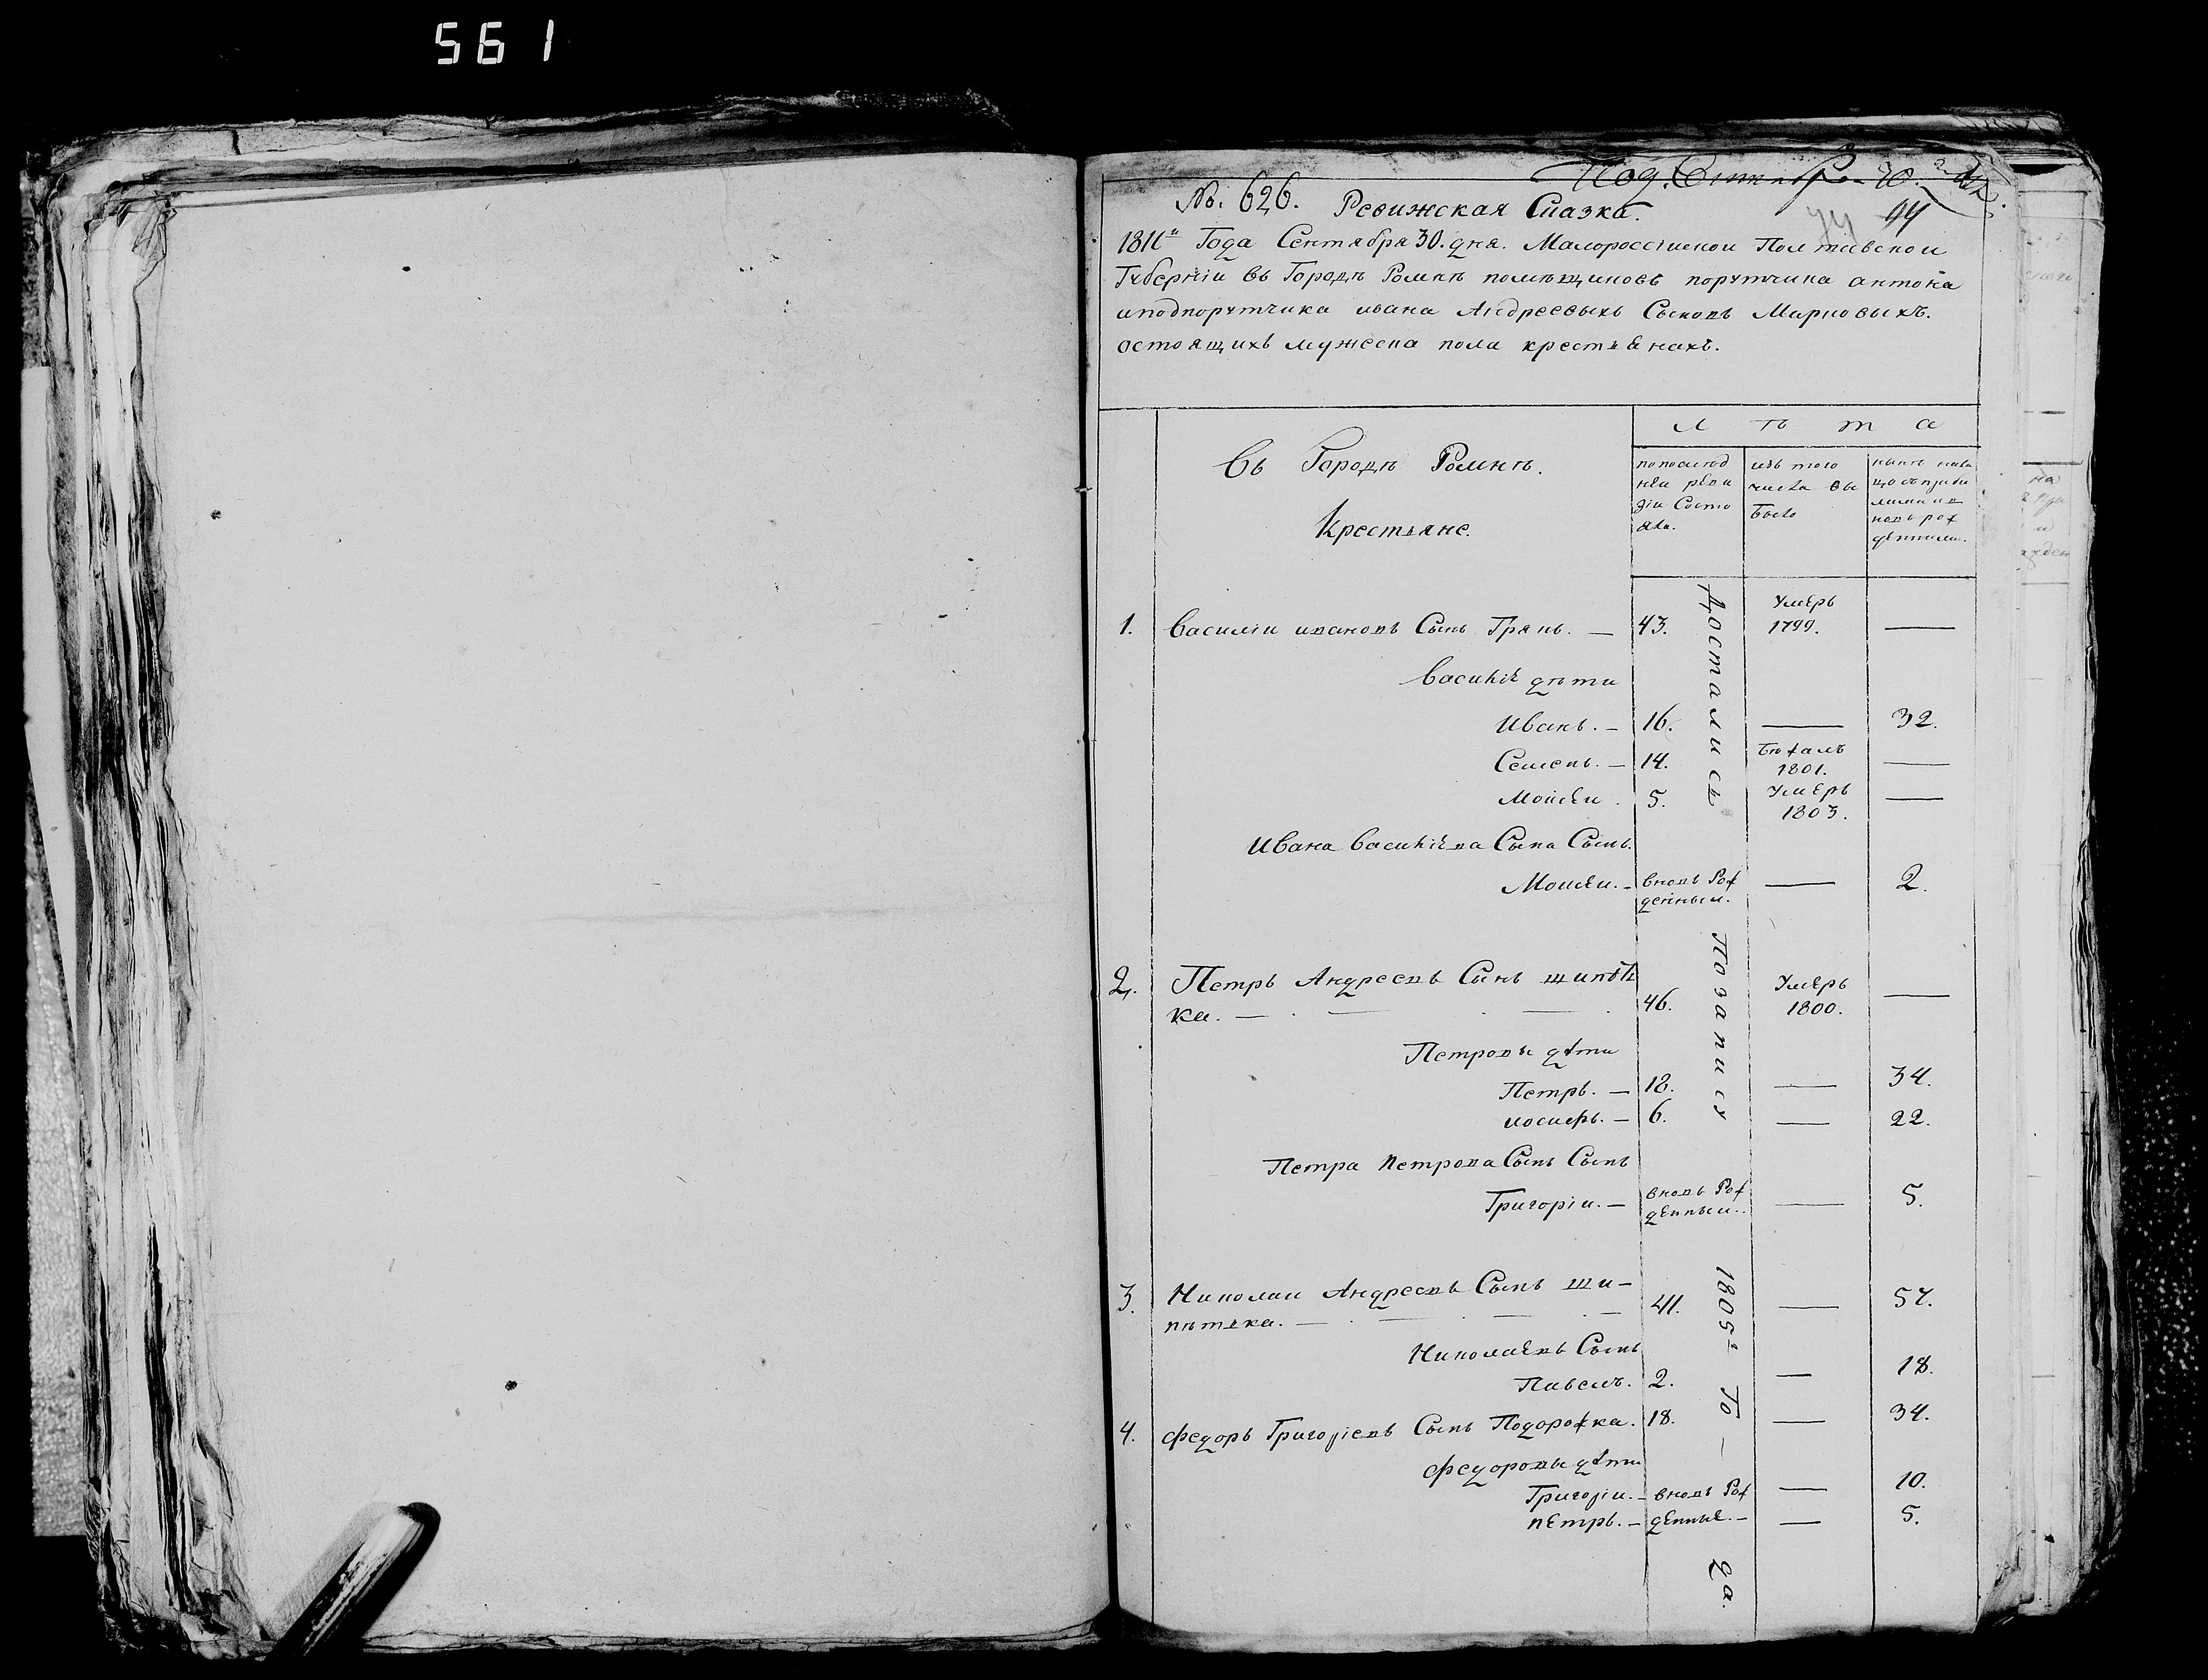 561
№. 626. Ревижская Сказка.
44
1811го Года Сентября 30. дня. Малороссiискои Полтавскои
Губернiи въ Городѣ Ромнѣ помѣщиковъ порутчика антона
иподпорутчика ивана Андреевыхъ Сыновъ Марковыхъ.
остоящихъ мужеска пола крестьянахъ.
Въ Городѣ Ромнѣ.
Крестьяне.
л ѣ т а
попослѣд
неи реви
зiи Состо
яло.
изъ того
числа вы
было
нынѣ нали
цо съприбы
лыми и в
новь рож
денными.
Достались
По запису
1805го Го — да.
1. Василiи ивановъ Сынъ Грянь. — 43. Умеръ 1799. —
Василiя дѣти
Иванъ. — 16. — 32.
Семенъ. — 14. Бѣжалъ 1801. —
Моисеи. 5. Умеръ 1803. —
Ивана Василiева Сына Сынъ.
Моисеи. — вновь Рож
денныи. — 2.
2. Петръ Андреевъ Сынъ шипѣть
ка. — 46. Умеръ 1800. —
Петровы дѣти
Петръ. — 18. — 34.
иосифъ. — 6. — 22.
Петра Петрова Сынъ Сынъ
Григорiи. — вновь Рож
денныи. — 5.
3. Николаи Андреевъ Сынъ ши-
пѣтька. — 41. — 57.
Николаевъ Сынъ
Павелъ. 2. — 18.
4. федоръ Григорiевъ Сынъ Подорожка. 18. — 34.
федоровы дѣти
Григорiи. — вновь Рож — 10.
петръ. — денные. — — 5.